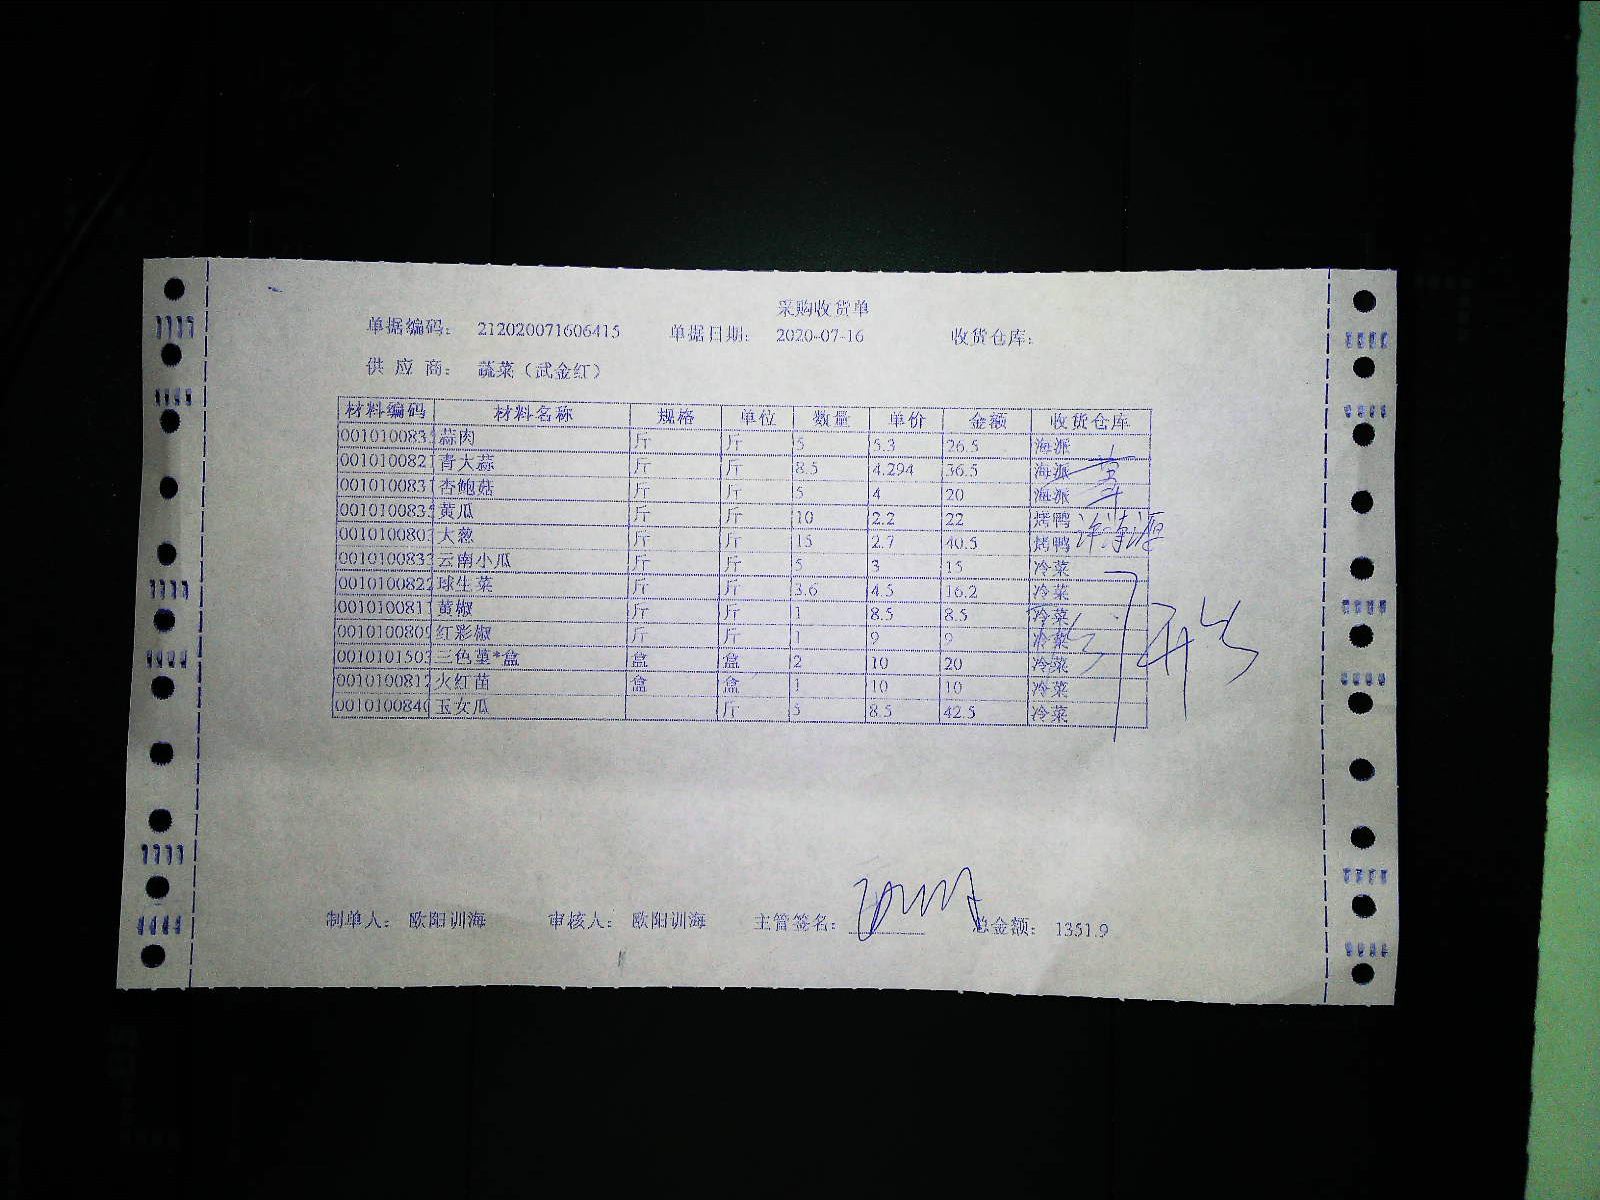 采购收货单
单据编码: 212020071606415 单据日期: 2020-07-16 收货仓库:
供 应 商: 蔬菜（武金红）
材料编码 材料名称 规格 单位 数量 单价 金额 收货仓库
001010083 蒜肉 斤 斤 5 5.3 26.5 海派
001010082 青大蒜 斤 斤 8.5 4.294 36.5 海派
001010083 杏鲍菇 斤 斤 5 4 20 海派
001010083 黄瓜 斤 斤 10 2.2 22 烤鸭
001010080 大葱 斤 斤 15 2.7 40.5 烤鸭
001010083 云南小瓜 斤 斤 5 3 15 冷菜
001010082 球生菜 斤 斤 3.6 4.5 16.2 冷菜
001010081 黄椒 斤 斤 1 8.5 8.5 冷菜
001010080 红彩椒 斤 斤 1 9 9 冷菜
001010150 三色堇*盒 盒 盒 2 10 20 冷菜
001010081 火红苗 盒 盒 1 10 10 冷菜
001010084 玉女瓜 斤 5 8.5 42.5 冷菜
制单人: 欧阳训海 审核人: 欧阳训海 主管签名: 总金额: 1351.9